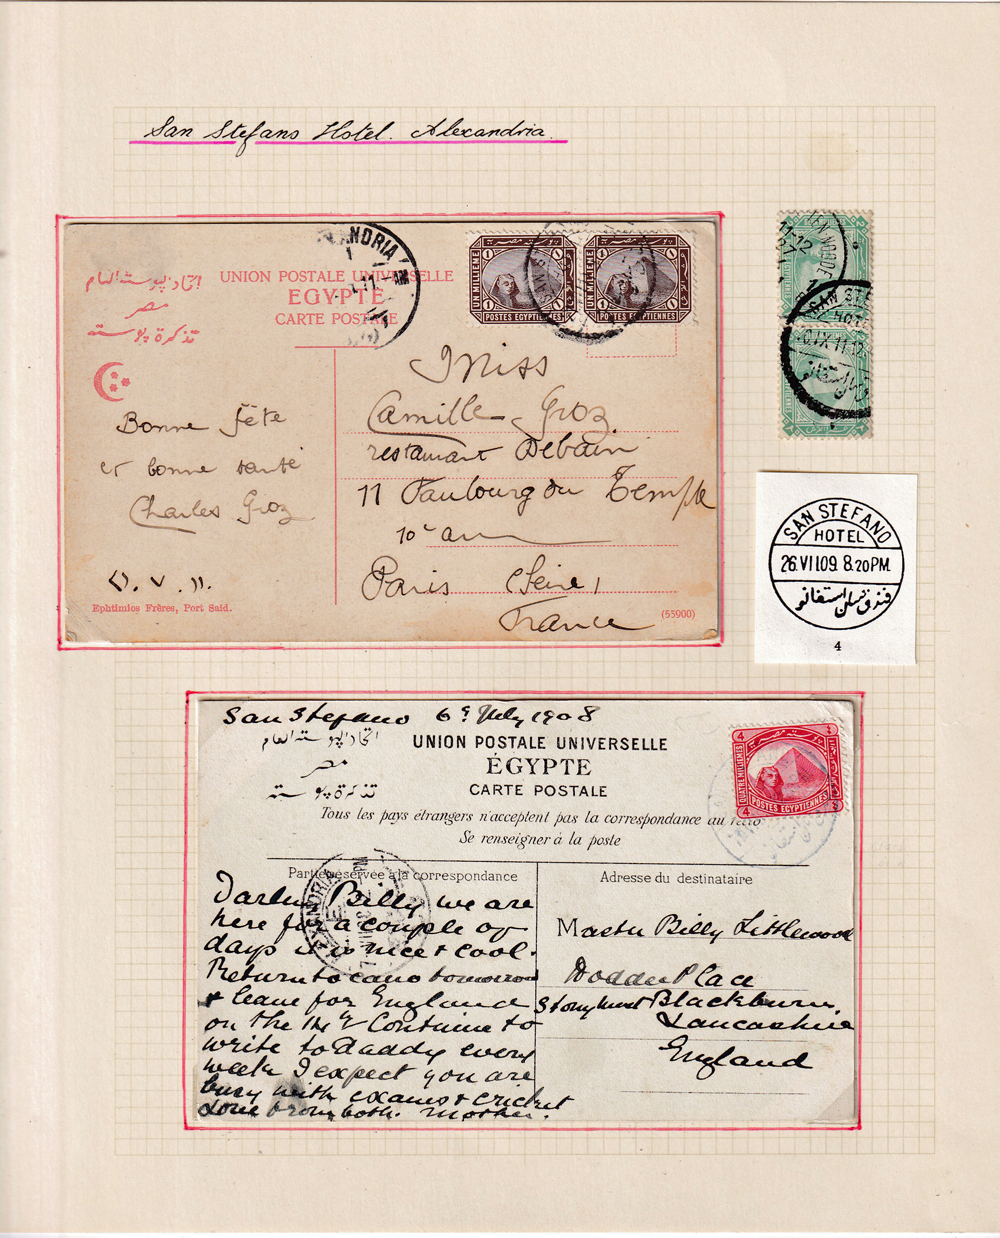 San Stefano Hotel. Alexandria.
ANDRIA
اتحاد البوستة العام
مصر
تذكرة بوستة
UNION POSTALE UNIVERSELLE
EGYPTE
CARTE POSTALE
1 1
UN MILLIEME
POSTES EGYPTIENNES
1 1
UN MILLIEME
POSTES EGYPTIENNES
SAN S
Bonne fête
et bonne santé
Charles Groz
Ephtimios Frères, Port Said.
Miss
Camille Groz
restaurant Debain
11 Faubourg du Temple
10e
Paris (Seine)
France
(55900)
11-12
SAN STE
HOT
IX 11-12
SAN STEFANO
HOTEL
26.VII.09. 8.20PM.
فندق سان استفانو
4
San Stefano 6th July 1908
اتحاد البوستة العام
مصر
تذكرة بوستة
UNION POSTALE UNIVERSELLE
ÉGYPTE
CARTE POSTALE
Tous les pays étrangers n'acceptent pas la correspondance au recto
Se renseigner à la poste
4
QUATRE MILLIEMES
POSTES EGYPTIENNES
4
Partie réservée à la correspondance
Adresse du destinataire
Darling Billy we are
here for a couple of
days it is nice & cool.
Return to cairo tomorrow
& leave for England
on the Continue to
write to Daddy every
week I expect you are
busy with exams & cricket
Love from both. Mother.
Master Billy Littlewood
Place
Stonyhurst Blackburn
Lancashire
England